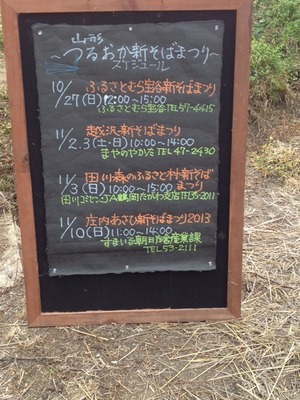 山形
～つるおか新そばまつり～
スケジュール
10/27(日)12:00～15:00
ふるさとむら宝谷新そばまつり
ふるさとむら宝谷 TEL57-4615
越沢新そばまつり
11/2.3(土・日)10:00～14:00
まやのやかた TEL47-2430
田川森のふるさと村新そばまつり
11/3(日)10:00～15:00
田川コミセン・JA鶴岡たがわ支店 TEL35-2011
庄内あさひ新そばまつり2013
11/10(日)11:00～14:00
すまいる 朝日庁舎産業課
TEL53-2111